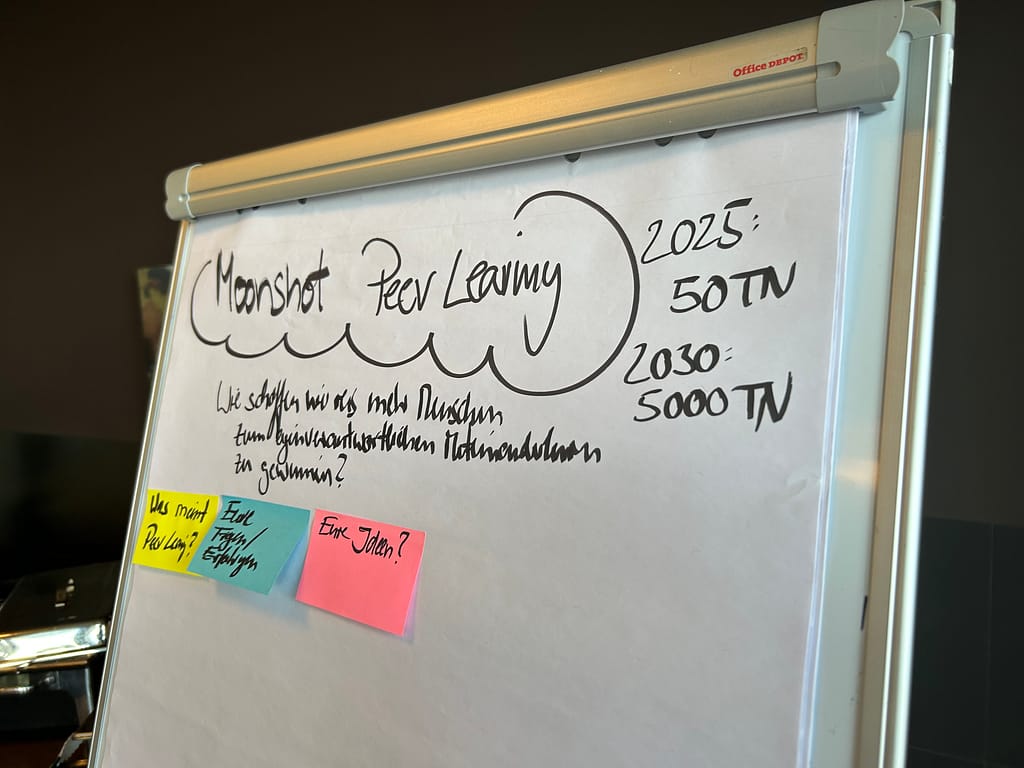 Office DEPOT
Moonshot Peer Learning
2025:
50 TN
2030:
5000 TN
Wie schaffen wir es mehr Menschen
zum eigenverantwortlichen
zu gewinnen?
Was meint
Peer Learning?
Eure
Fragen/
Erfahrungen
Eure Ideen?